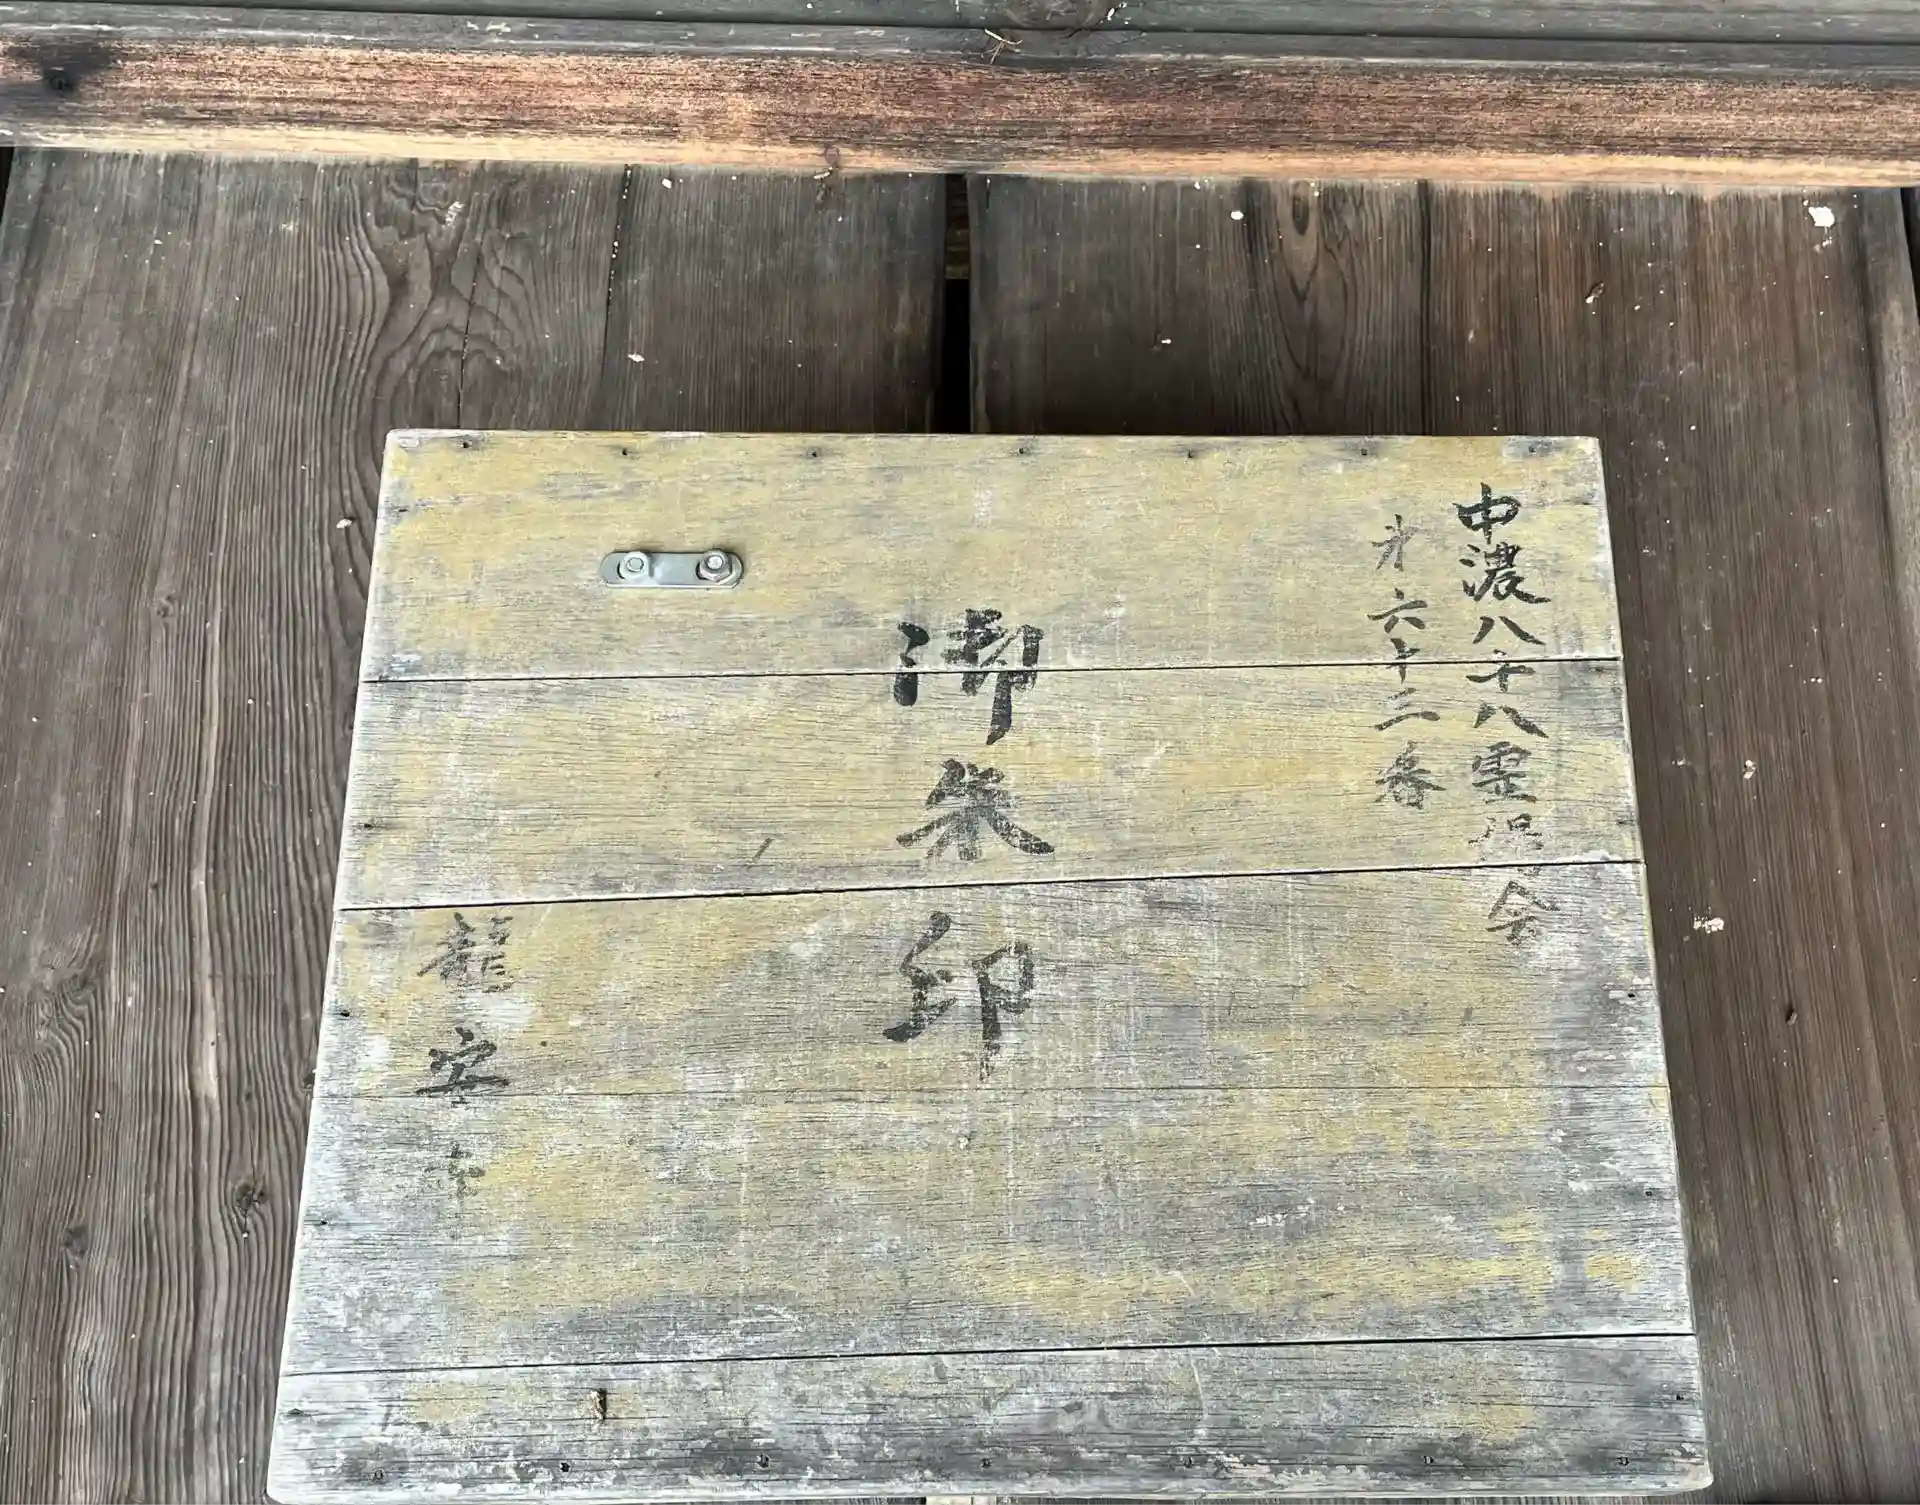 中濃八十八霊場会
第六十二番
御朱印
龍安寺